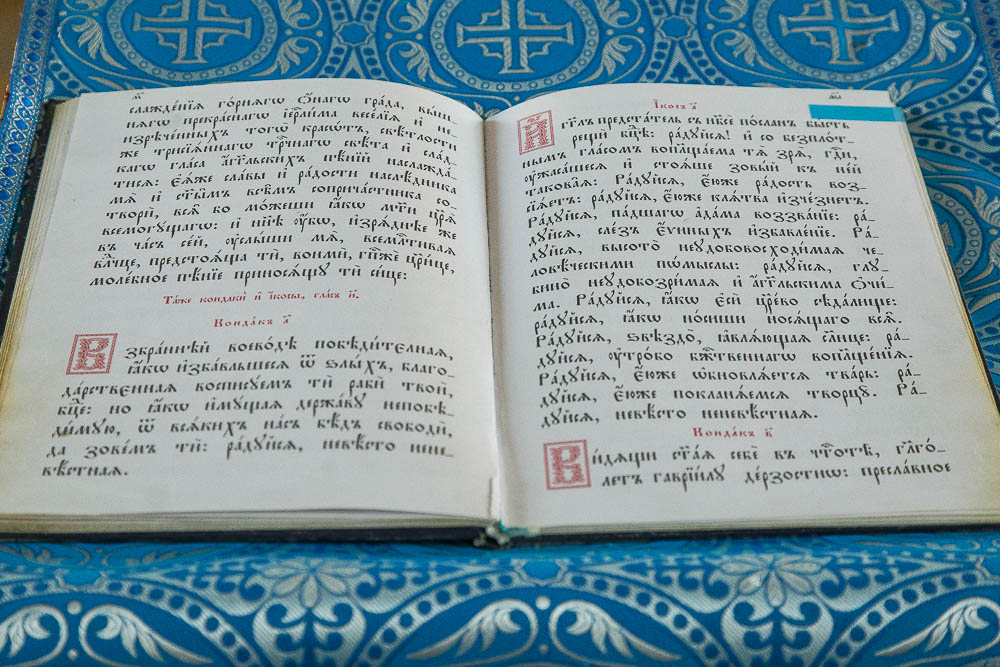 м҃
слажде́нїѧ го́рнѧгѡ ѻ҆́нагѡ гра́да, вы́ш-
нѧгѡ прекра́снагѡ і҆ерⷭ҇ли́ма весе́лїѧ и҆ не-
изрече́нныхъ тогѡ̀ красо́тъ, свѣ́тлости
же трисїѧ́ннагѡ трⷪ҇чнагѡ свѣ́та и҆ сла́д-
кагѡ гла́са а҆́гг҃льскихъ пѣ́нїй наслажда́-
тисѧ: є҆ѧ́же сла́вы и҆ ра́дости наслѣ́дника
мѧ̀ и҆ ст҃ы̑мъ всѣ̑мъ соприча́стника со-
творѝ, всѧ̑ бо мо́жеши ꙗ҆́кѡ мт҃и цр҃ѧ̀
всемогꙋ́щагѡ: и҆ нн҃ѣ ᲂу҆̀бѡ, и҆зрѧ́днѣе же
въ ча́съ се́й, ᲂу҆слы́ши мѧ̀, всемлⷭ҇тиваѧ
влⷣчце, предстоѧ́ща тѝ, вонмѝ, гп҃же цр҃и́це,
моле́бное пѣ́нїе приносѧ́щꙋ тѝ си́це:
Та́же кондакѝ и҆ і҆́косы, гла́съ и҃.
Конда́къ а҃
Взбра́ннѣй воево́дѣ побѣди́тєльнаѧ,
ꙗ҆́кѡ и҆зба́вльшесѧ ѿ ѕлы́хъ, благо-
да́рствєннаѧ воспи́сꙋемъ тѝ рабѝ твоѝ,
бцⷣе: но ꙗ҆́кѡ и҆мꙋ́щаѧ держа́вꙋ непобѣ-
ди́мꙋю, ѿ всѧ́кихъ на́съ бѣ́дъ свободѝ,
да зове́мъ тѝ: ра́дꙋйсѧ, невѣ́сто нене-
вѣ́стнаѧ.
м҃а
І҆́косъ а҃
А҆́гг҃лъ предста́тель съ нб҃сѐ по́сланъ бы́сть
рещѝ бцⷣѣ: ра́дꙋйсѧ! и҆ со безпло́т-
нымъ гла́сомъ воплоща́ема тѧ̀ зрѧ̀, гдⷭ҇и,
ᲂу҆жаса́шесѧ и҆ стоѧ́ше зовы́й къ не́й
такова̑ѧ: Ра́дꙋйсѧ, є҆́юже ра́дость воз-
сїѧ́етъ: ра́дꙋйсѧ, є҆́юже клѧ́тва и҆зче́знетъ.
Ра́дꙋйсѧ, па́дшагѡ а҆да́ма воззва́нїе: ра́-
дꙋйсѧ, сле́зъ є҆́ѵиныхъ и҆збавле́нїе. Ра́-
дꙋйсѧ, высото̀ неꙋдобовосходи́маѧ че-
ловѣ́ческими по́мыслы: ра́дꙋйсѧ, глꙋ-
бино̀ неꙋдобозри́маѧ и҆ а҆́гг҃льскима ѻ҆чи́-
ма. Ра́дꙋйсѧ, ꙗ҆́кѡ є҆сѝ цр҃е́во сѣда́лище:
ра́дꙋйсѧ, ꙗ҆́кѡ но́сиши носѧ́щаго всѧ̑.
Ра́дꙋйсѧ, ѕвѣздо̀, ꙗ҆влѧ́ющаѧ сл҃нце: ра́-
дꙋйсѧ, ᲂу҆тро́бо бж҃е́ственнагѡ воплоще́нїѧ.
Ра́дꙋйсѧ, є҆́юже ѡ҆бновлѧ́етсѧ тва́рь: ра́-
дꙋйсѧ, є҆́юже покланѧ́емсѧ творцꙋ̀. Ра́-
дꙋйсѧ, невѣ́сто неневѣ́стнаѧ.
Конда́къ в҃
Ви́дѧщи ст҃а́ѧ себѐ въ чⷭ҇тотѣ̀, гл҃го-
летъ гаврїи́лꙋ де́рзостнѡ: пресла́вное